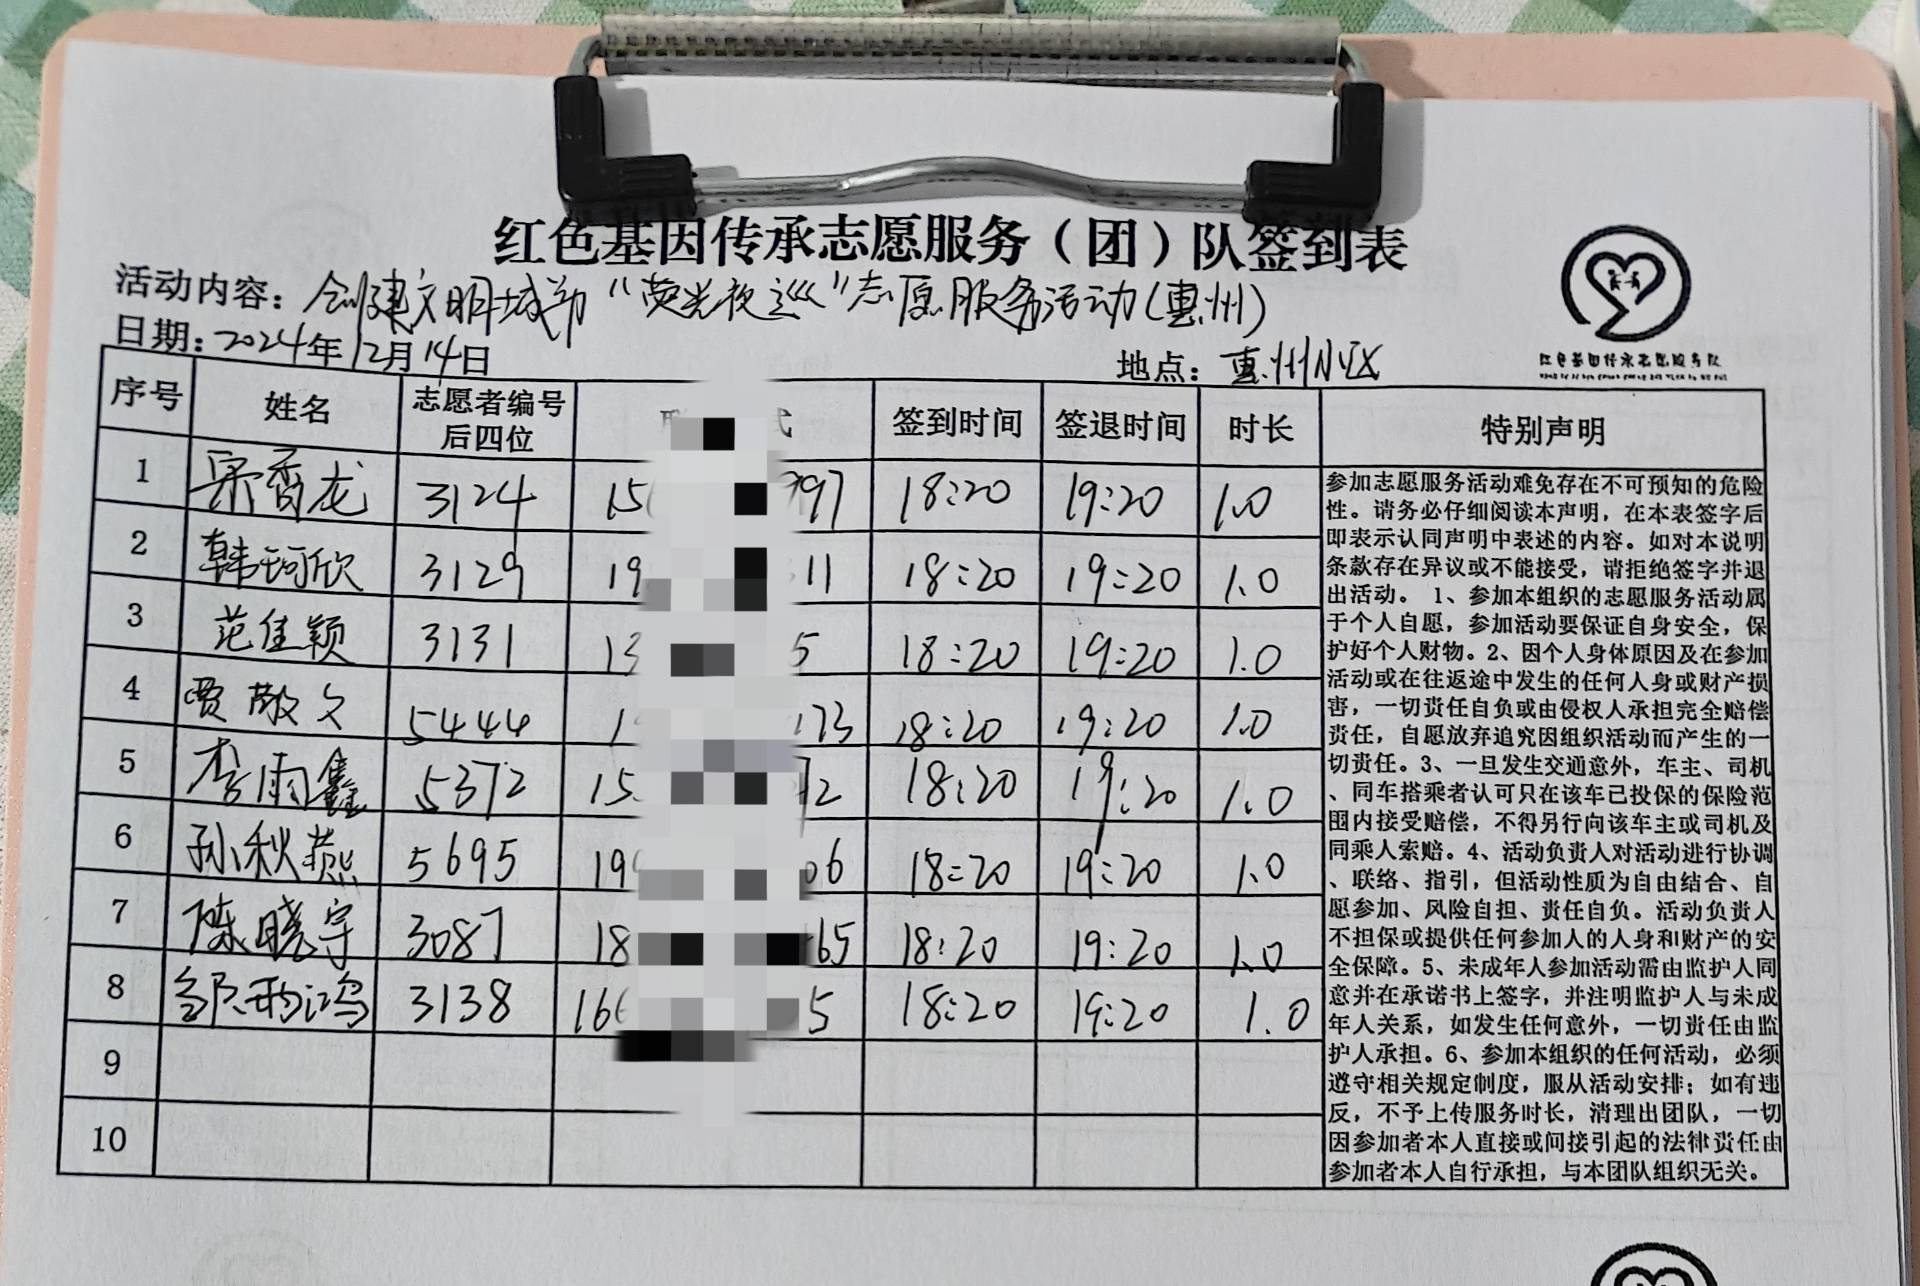 红色基因传承志愿服务（团）队签到表
活动内容：创建文明城市“荧光夜巡”志愿服务活动(惠州)
日期：2024年12月14日
地点：惠州小区
红色基因传承志愿服务队
序号 姓名 志愿者编号后四位 式 签到时间 签退时间 时长 特别声明
1 梁香龙 3124 15 997 18:20 19:20 1.0
2 韩珂欣 3129 19 11 18:20 19:20 1.0
3 范佳颖 3131 13 5 18:20 19:20 1.0
4 贾敬文 5444 1 173 18:20 19:20 1.0
5 李雨鑫 5372 15 92 18:20 19:20 1.0
6 孙秋燕 5695 19 06 18:20 19:20 1.0
7 陈晓宇 3087 18 65 18:20 19:20 1.0
8 邹雨鸿 3138 16 5 18:20 19:20 1.0
9
10
参加志愿服务活动难免存在不可预知的危险
性。请务必仔细阅读本声明，在本表签字后
即表示认同声明中表述的内容。如对本说明
条款存在异议或不能接受，请拒绝签字并退
出活动。 1、参加本组织的志愿服务活动属
于个人自愿，参加活动要保证自身安全，保
护好个人财物。2、因个人身体原因及在参加
活动或在往返途中发生的任何人身或财产损
害，一切责任自负或由侵权人承担完全赔偿
责任，自愿放弃追究因组织活动而产生的一
切责任。3、一旦发生交通意外，车主、司机
、同车搭乘者认可只在该车已投保的保险范
围内接受赔偿，不得另行向该车主或司机及
同乘人索赔。4、活动负责人对活动进行协调
、联络、指引，但活动性质为自由结合、自
愿参加、风险自担、责任自负。活动负责人
不担保或提供任何参加人的人身和财产的安
全保障。5、未成年人参加活动需由监护人同
意并在承诺书上签字，并注明监护人与未成
年人关系，如发生任何意外，一切责任由监
护人承担。6、参加本组织的任何活动，必须
遵守相关规定制度，服从活动安排；如有违
反，不予上传服务时长，清理出团队，一切
因参加者本人直接或间接引起的法律责任由
参加者本人自行承担，与本团队组织无关。